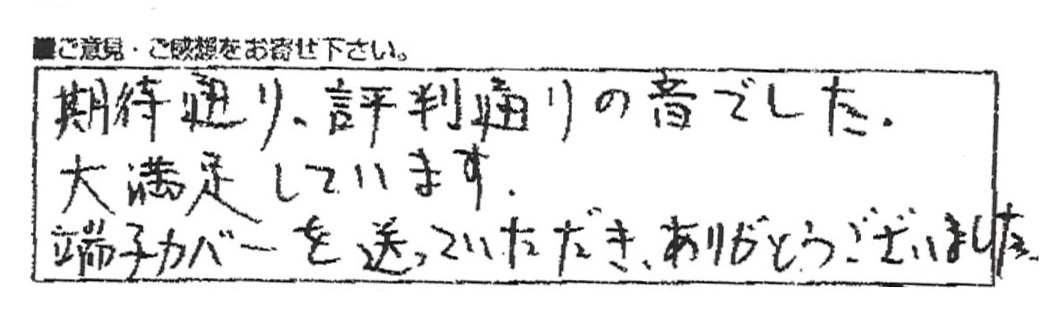 ■ご意見・ご感想をお寄せ下さい。
期待通り、評判通りの音でした.
大満足しています.
端子カバーを送っていただき、ありがとうございました.